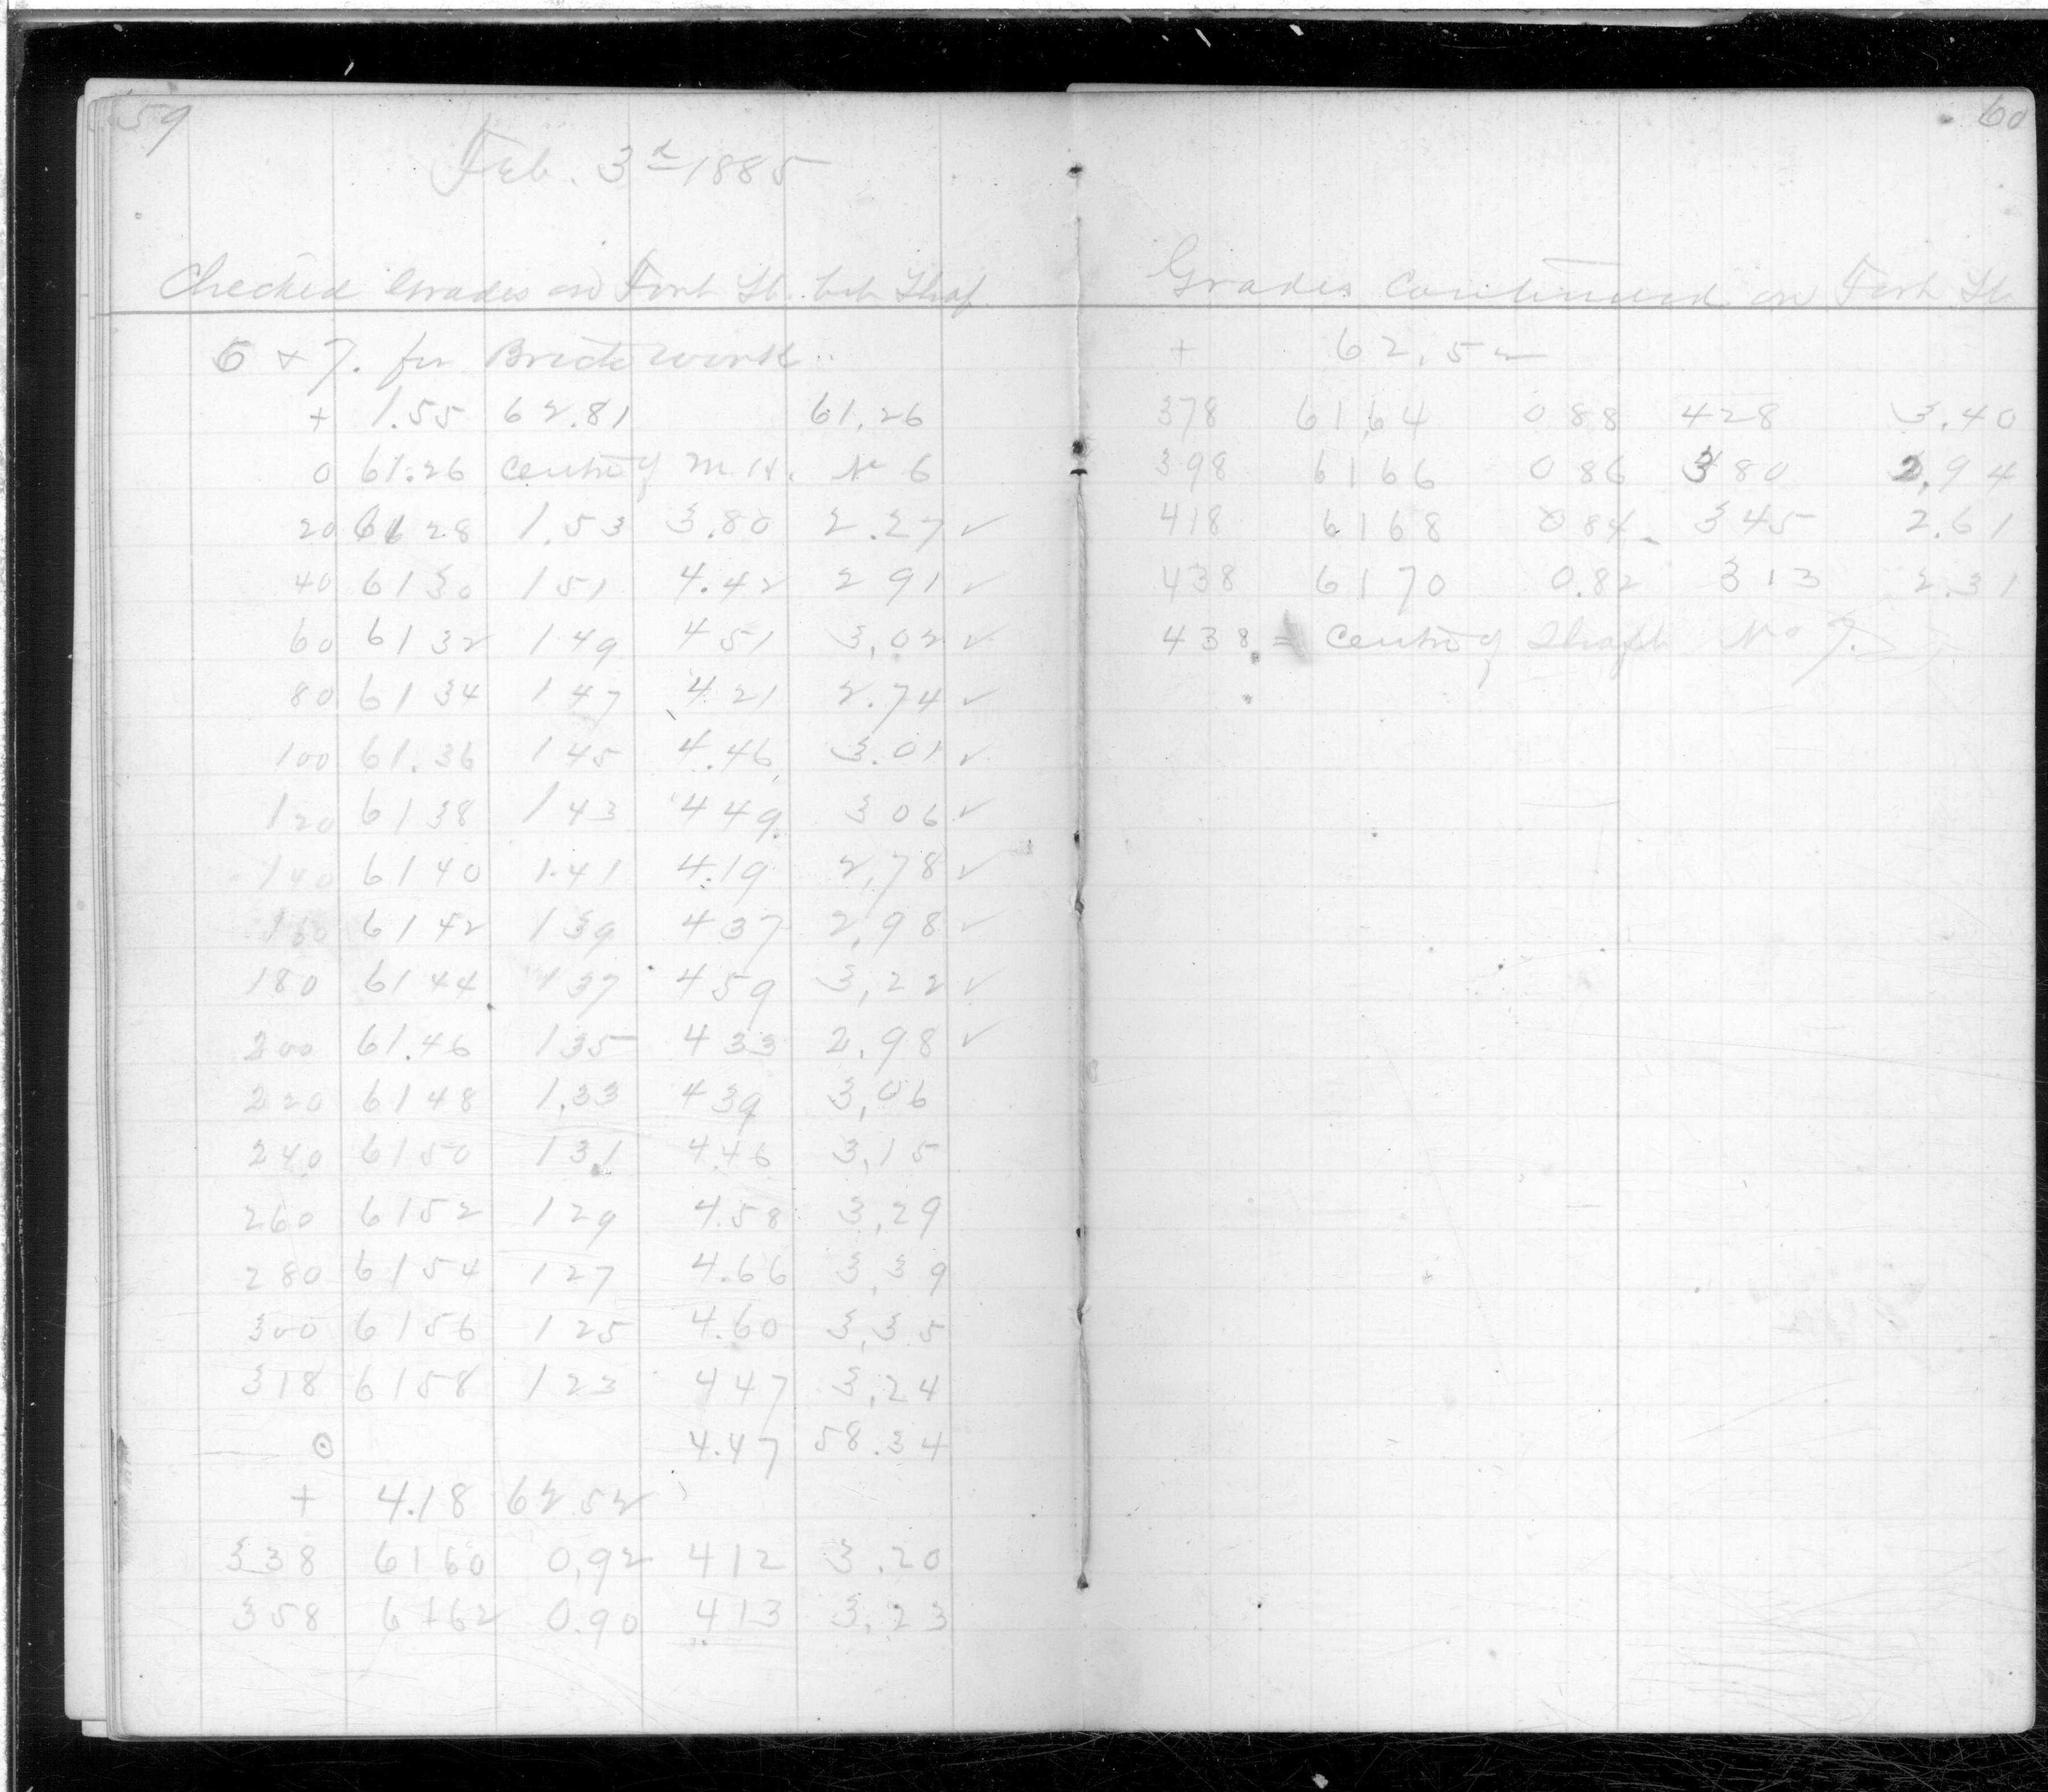 59
Feb. 3d 1885
Checked Grades on Fort St. bet. Shaf.
6 & 7. for Brickwork..
+ 1.55 62.81 61.26
0 61.26 Centre of M.H. No 6
20 61 28 1.53 3.80 2.27 ✓
40 61 30 1 51 4.42 2 91 ✓
60 61 32 1 49 4 51 3,02 ✓
80 61 34 1 47 4.21 2.74 ✓
100 61.36 1 45 4.46 3.01 ✓
120 61 38 1 43 4 49 3 06 ✓
140 61 40 1.41 4.19 2,78 ✓
160 61 42 1 39 4 37 2,98 ✓
180 61 44 1 37 4 59 3,22 ✓
200 61.46 1 35 4 33 2,98 ✓
220 61 48 1,33 4 39 3,06
240 61 50 1 31 4.46 3,15
260 61 52 1 29 4.58 3,29
280 61 54 1 27 4.66 3,39
300 61 56 1 25 4.60 3,35
318 61 58 1 23 4 47 3,24
⊙ 4.47 58.34
+ 4.18 62 52
338 61 60 0,92 4 12 3.20
358 61 62 0.90 4 13 3,23
60
Grades Continued on Fort St.
+ 62.52
378 61,64 0 88 4 28 3.40
398 61 66 0 86 3 80 2,94
418 61 68 0 84 3 45 2.61
438 61 70 0.82 3 13 2.31
438 = Centre of Shaft No 7.